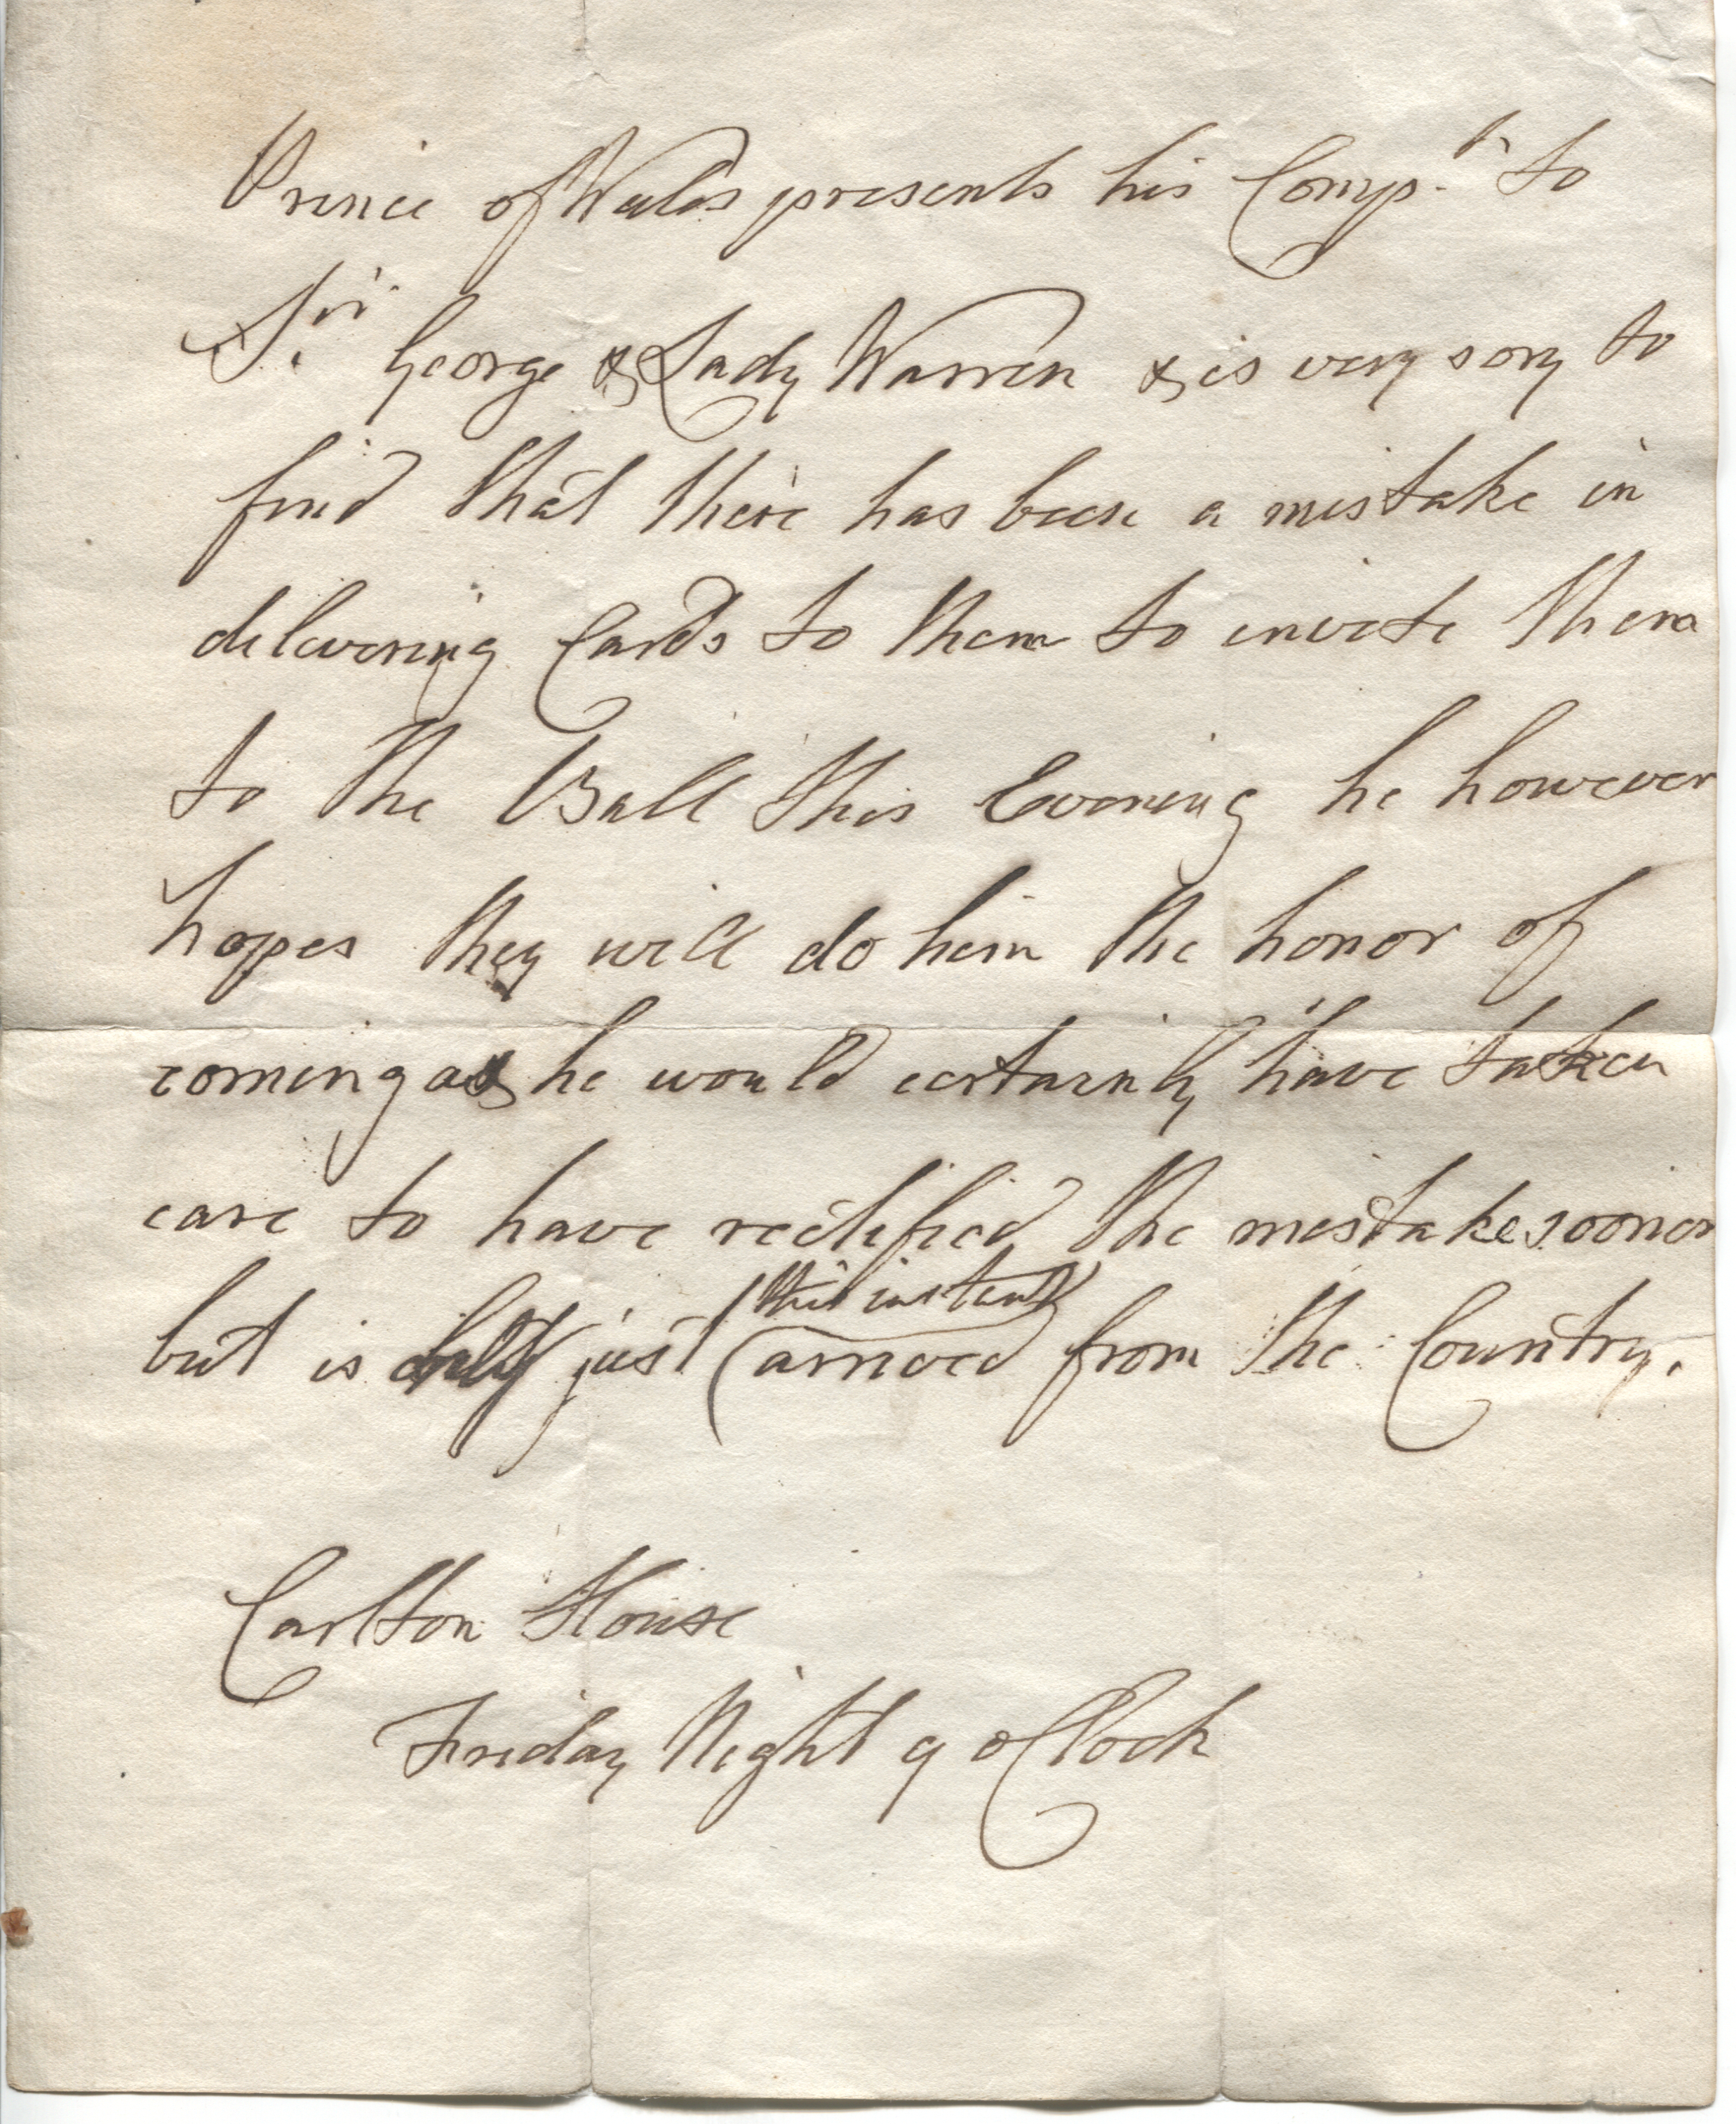 Prince of Wales presents his Comp.ts to
Sir. George & Lady Warren & is very sory to
find that there has been a mistake in
delivering Cards to them to invite them
to the Ball this Evening he however
hopes they will do him the honor of
coming as he would certainly have taken
care to have rectified the mistake sooner
but is only just (this instant) arrived from the Country.
Carlton House
Friday Night 9 o Clock